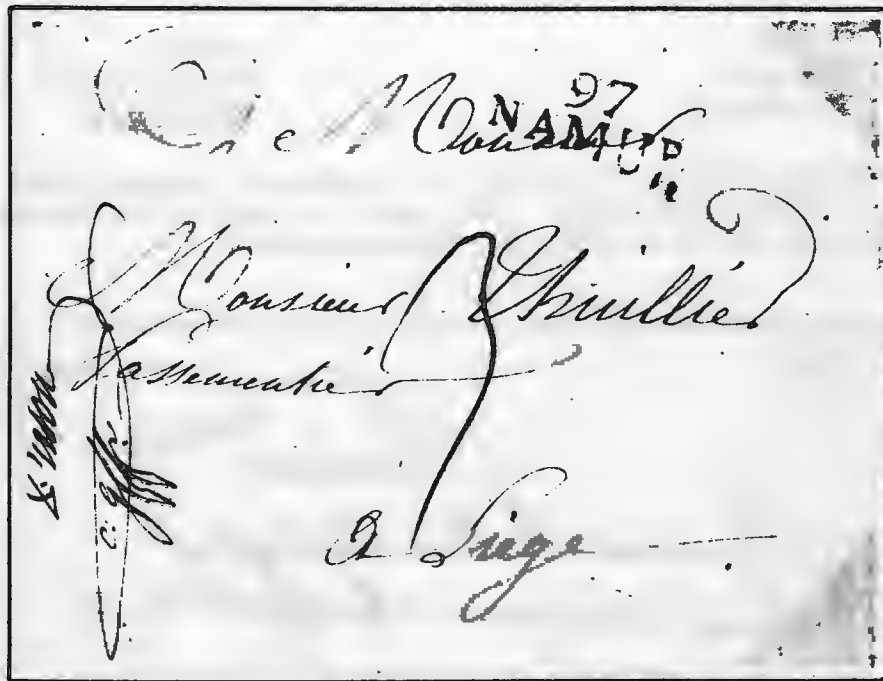 97
NAMUR
Monsieur
Monsieur Thuillié
Passementié
3
a Liège